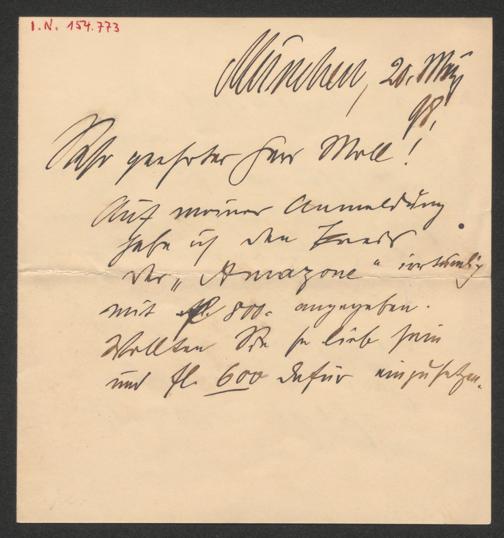 I.N. 154.773
München, 20. Mai
98.
Sehr geehrter Herr Moll!
Auf meiner Anmeldung
habe ich den Preis
der „Amazone“ irrthümlich
mit fl. 800.- angegeben.
Wollten Sie so lieb sein
und fl. 600 dafür einzusetzen.